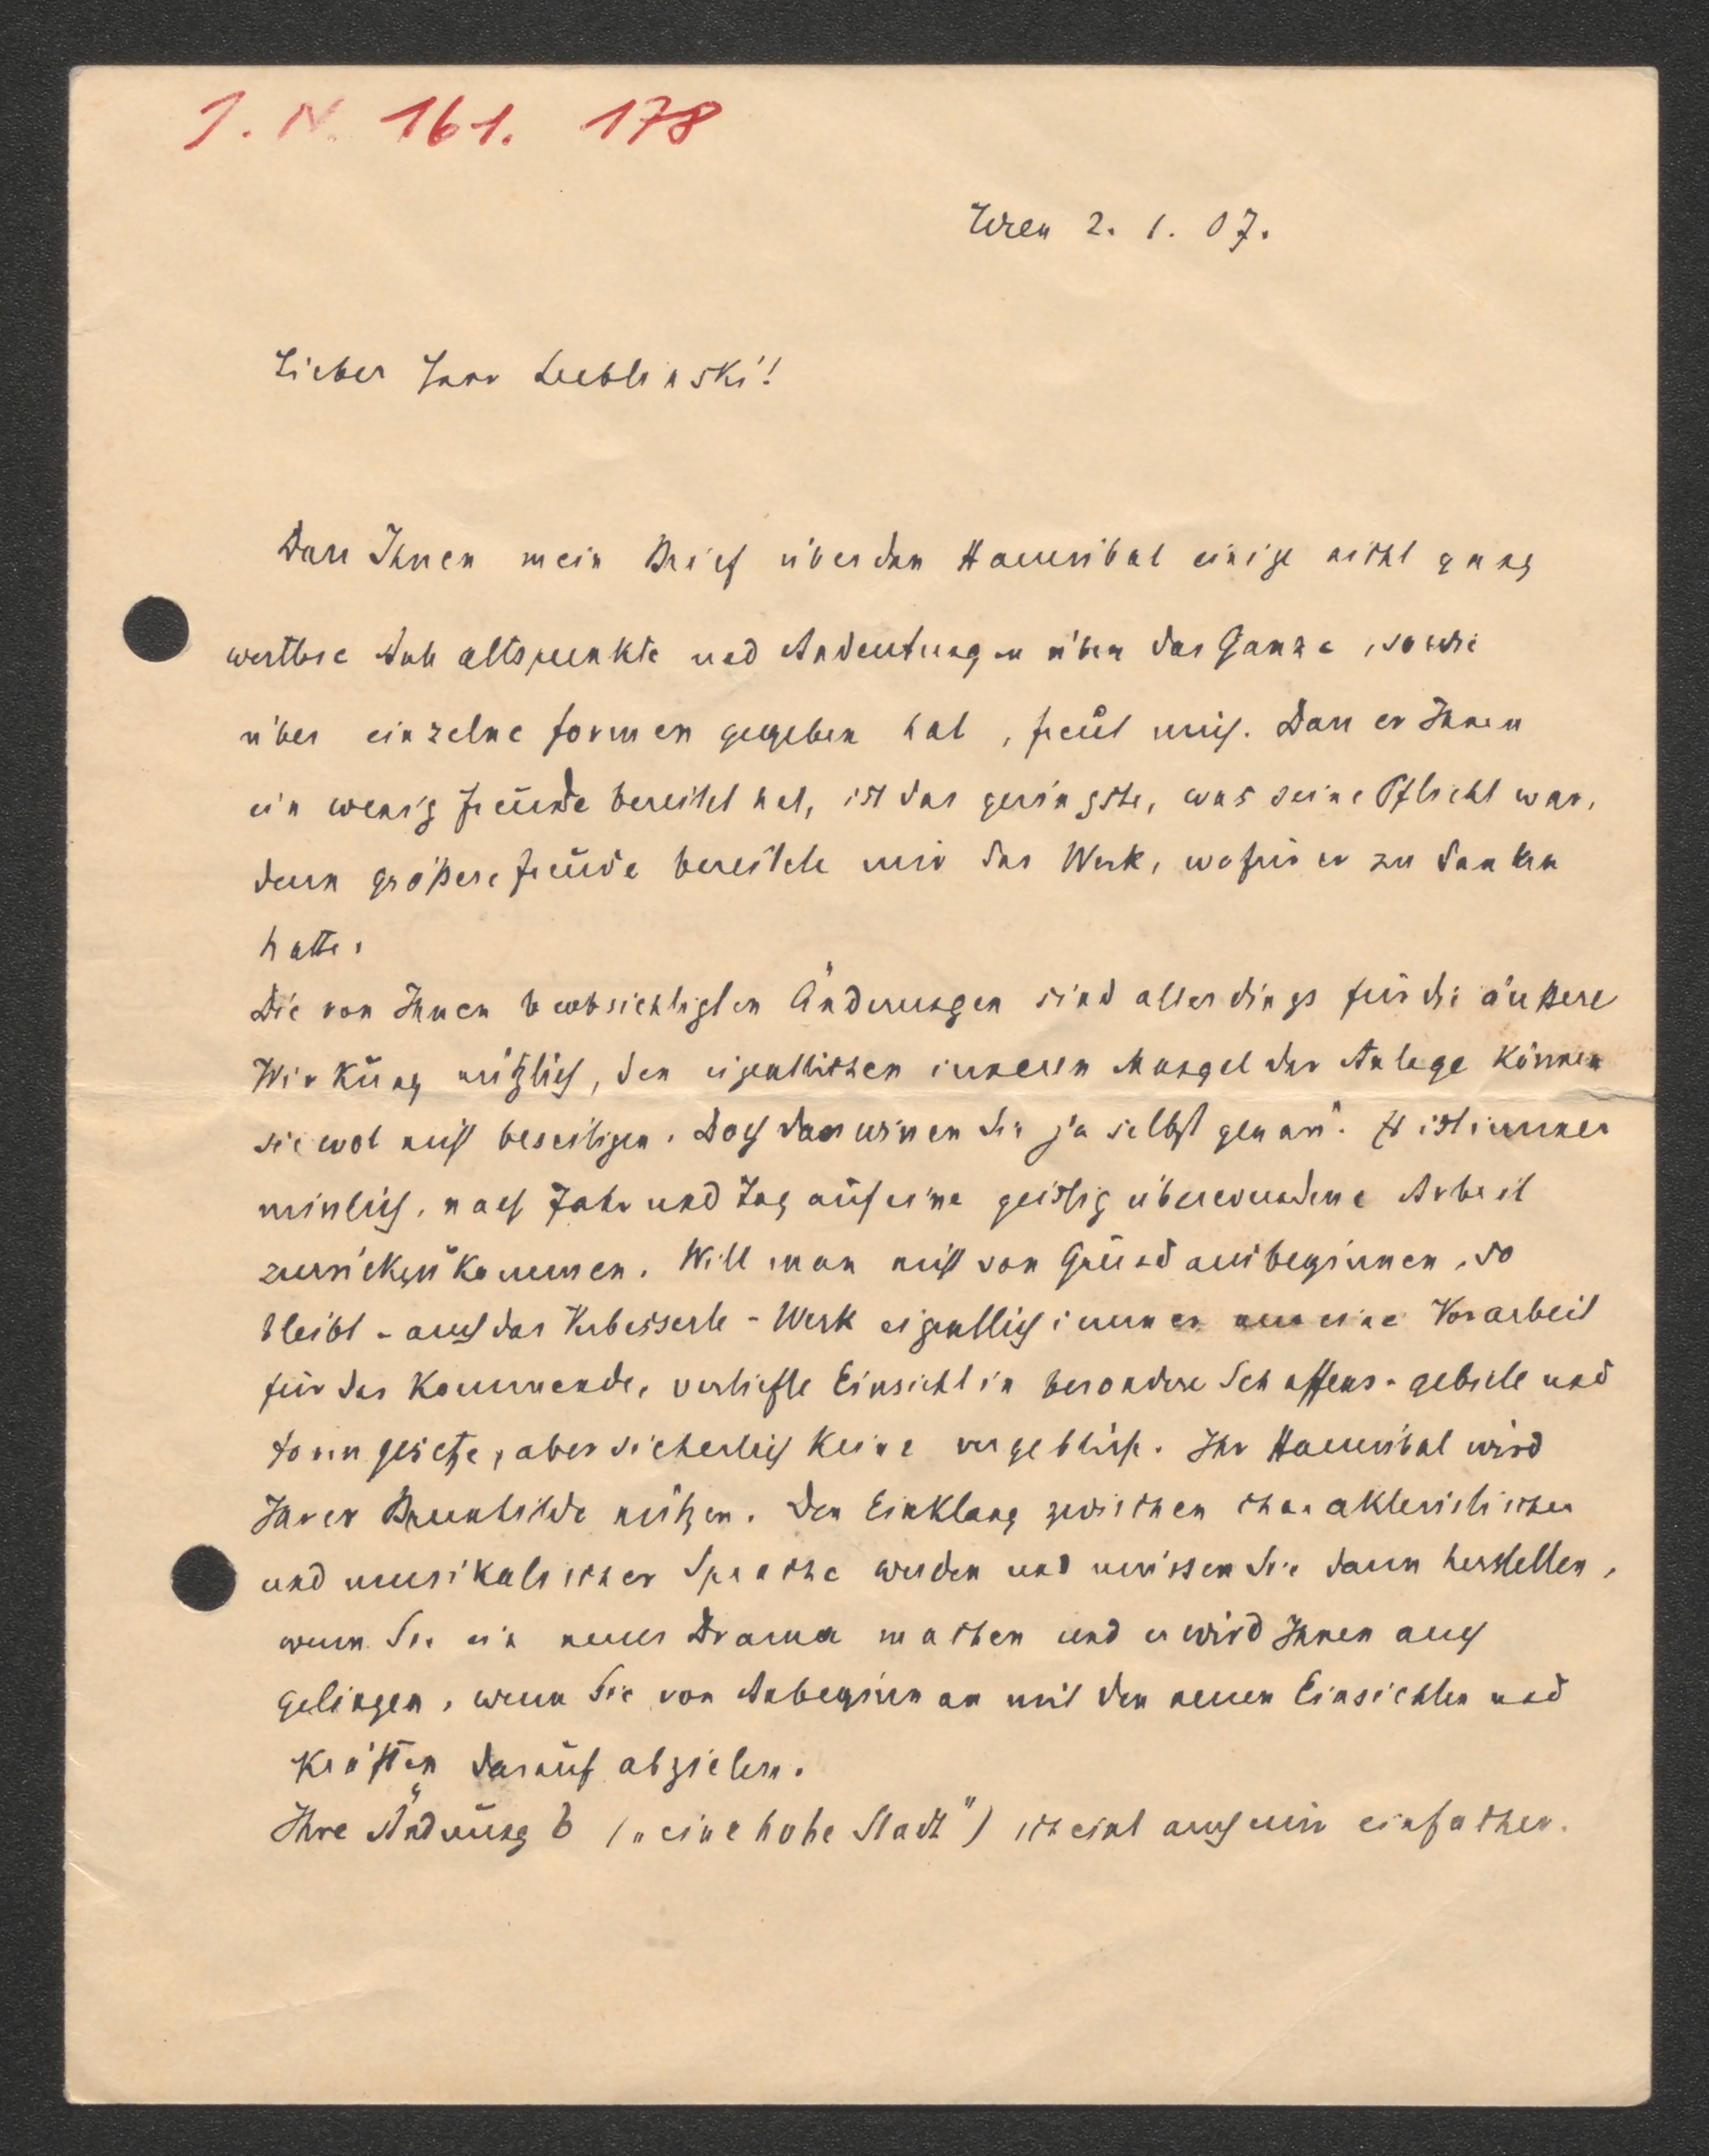 I. N. 161. 178
Wien 2. 1. 07.
Lieber Herr Lublinski!
Dass Ihnen mein Brief über den Hannibal einige nicht ganz
wertlose Anhaltspunkte und Andeutungen über das Ganze, sowie
über einzelne Formen gegeben hat, freut mich. Dass er Ihnen
ein wenig Freude bereitet hat, ist das geringste, was seine Pflicht war,
denn größere Freude bereitete mir das Werk, wofür er zu danken
hatte.
Die von Ihnen beabsichtigten Änderungen sind allerdings für die äußere
Wirkung nützlich, den eigentlichen inneren Mangel der Anlage können
sie wol nicht beseitigen. Doch das wissen Sie ja selbst genau. Es ist immer
misslich, nach Jahr und Tag auf eine geistig überwundene Arbeit
zurückzukommen. Will man nicht von Grund aus beginnen, so
bleibt - auch das Verbesserte - Werk eigentlich immer nur eine Vorarbeit
für das Kommende, vertiefte Einsicht in besondere Schaffens-gebiete und
Formgesetze, aber sicherlich keine vergebliche. Ihr Hannibal wird
Ihrer Brunhilde nützen. Den Einklang zwischen charakteristischer
und musikalischer Sprache werden und müssen Sie dann herstellen,
wenn Sie ein neues Drama machen und es wird Ihnen auch
gelingen, wenn Sie von Anbeginn an mit den neuen Einsichten und
Kräften darauf abzielen.
Ihre Änderung b („eine hohe Stadt") scheint auch mir einfacher.